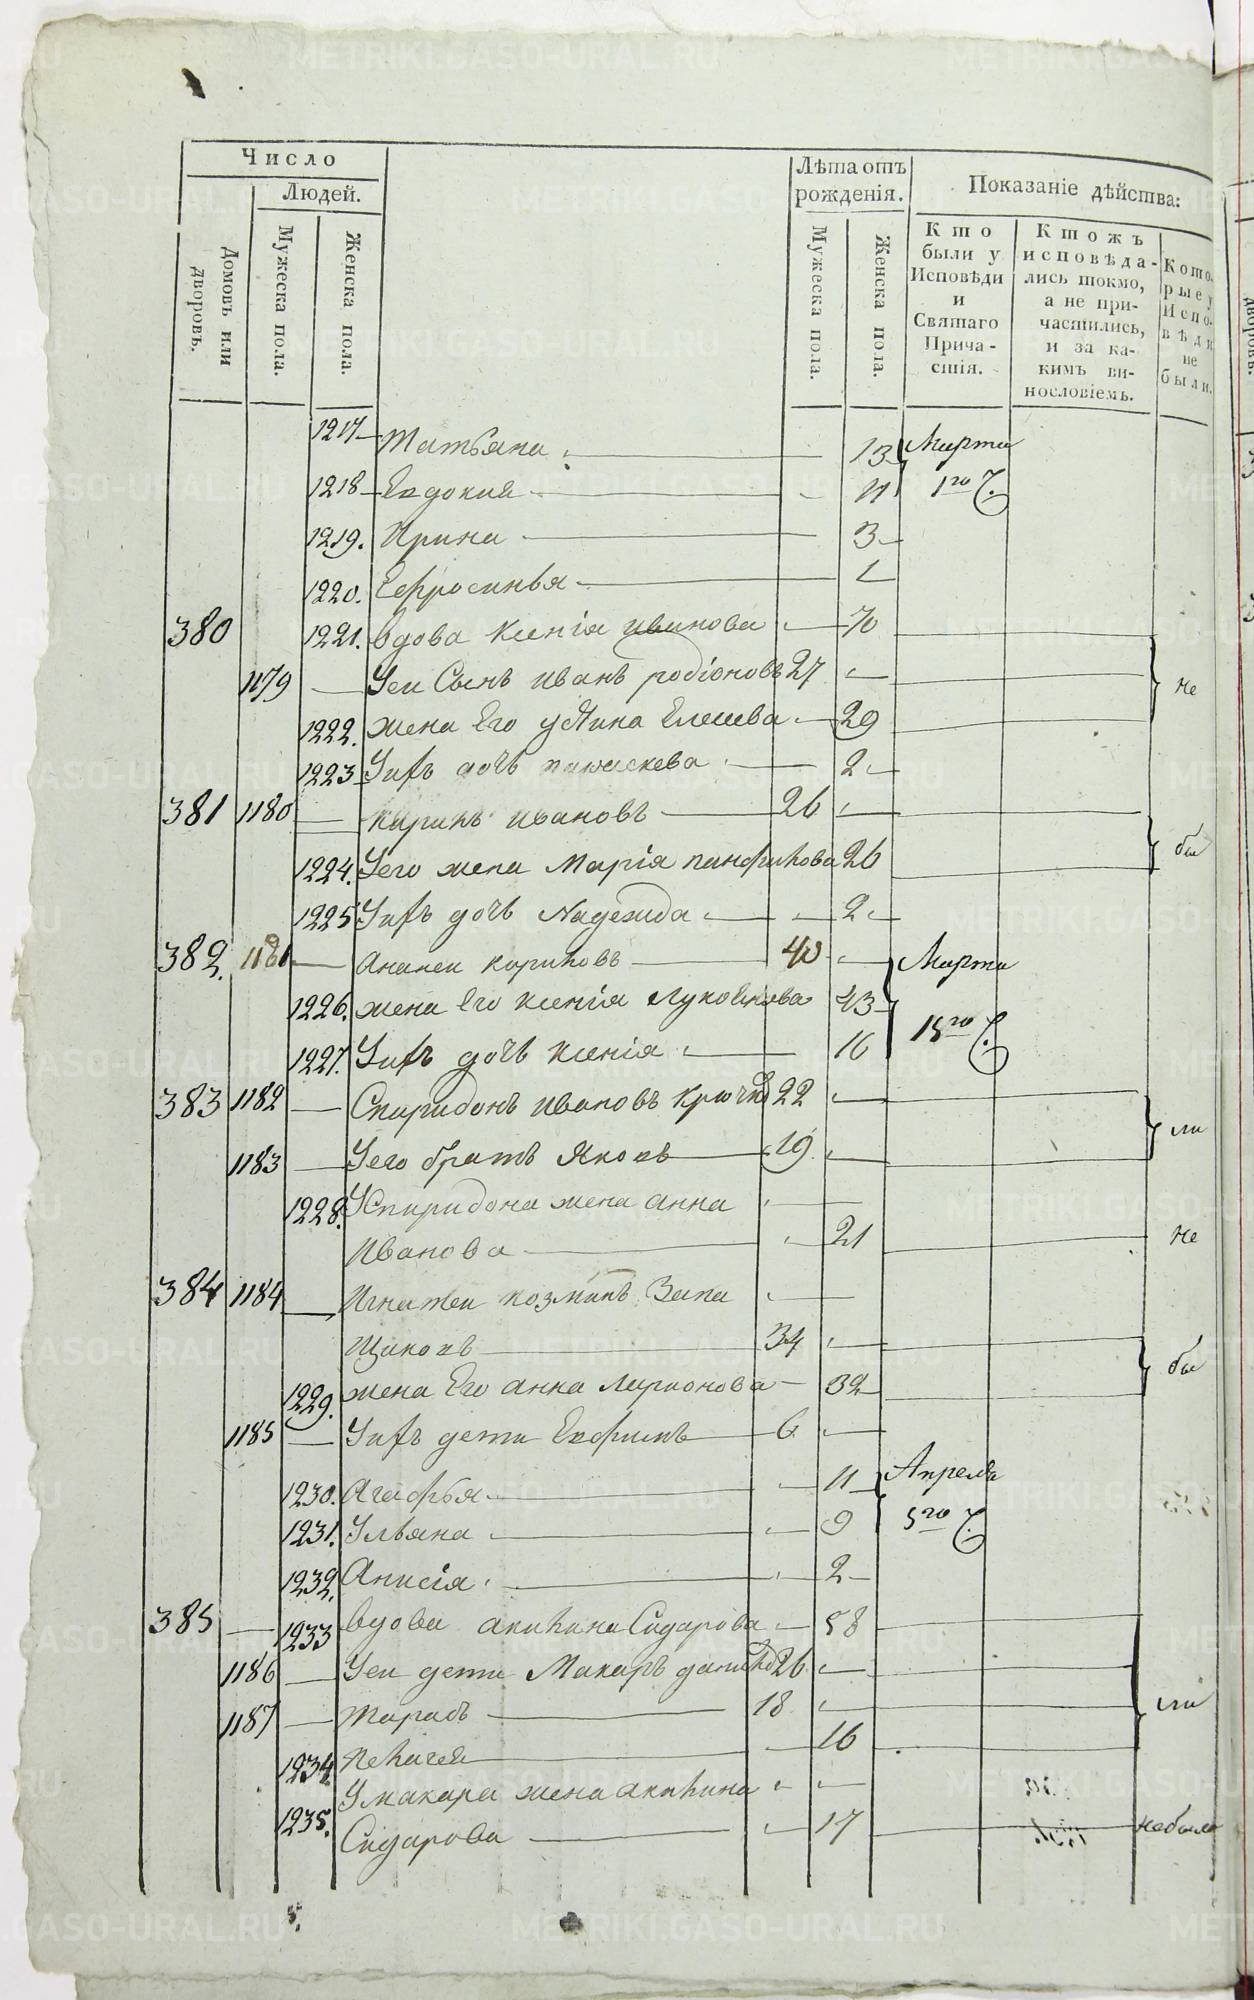 Число
Людей.
Домовъ или дворовъ.
Мужеска пола.
Женска пола.
Лѣта отъ рожденія.
Мужеска пола.
Женска пола.
Показаніе дѣйства:
Кто были у Исповѣди и Святаго Прича-стія.
Ктожъ исповѣда-лись токмо, а не при-частились, и за ка-кимъ ви-нословіемъ.
Кото-рые у Испо-вѣди не были.
1217 Татьяна 13 Марта
1218 Евдокия 11 1го Ч.
1219. Ирина 3
1220. Ефросинья 1
380 1221. вдова Ксенія иванова 70
1179 Уеи Сынъ иванъ родіоновъ 27 не
1222. жена Его Елисева 29
1223 Уихъ дочь 2
381 1180 ивановъ 26
1224. Уего жена Марія панфилова 26 бы
1225 Уихъ дочь Надежда 2
382. 1181 Ананеи 40 Марта
1226. жена Его Ксенія 43
1227. Уихъ дочь Ксенія 16 15го Ч.
383 1182 Спиридонъ ивановъ 22
1183 Уего братъ Яковъ 19 ли
1228. Успиридона жена анна
Иванова 21 не
384 1184 Игнатеи козминъ Запа
Щиковъ 34
1229. жена Его анна ларионова 32 бы
1185 Уихъ дети 6
1230. Агафья 11 Апреля
1231. Ульяна 9 5го Ч.
1232. Анисія 2
385 1233 вдова акилина Сидарова 58
1186 Уеи дети Макаръ 26
1187 Тарасъ 18 ли
1234 Пелагея 16
Умакара жена акилина
1235. Сидарова 17 небыла
METRIKI.GASO-URAL.RU